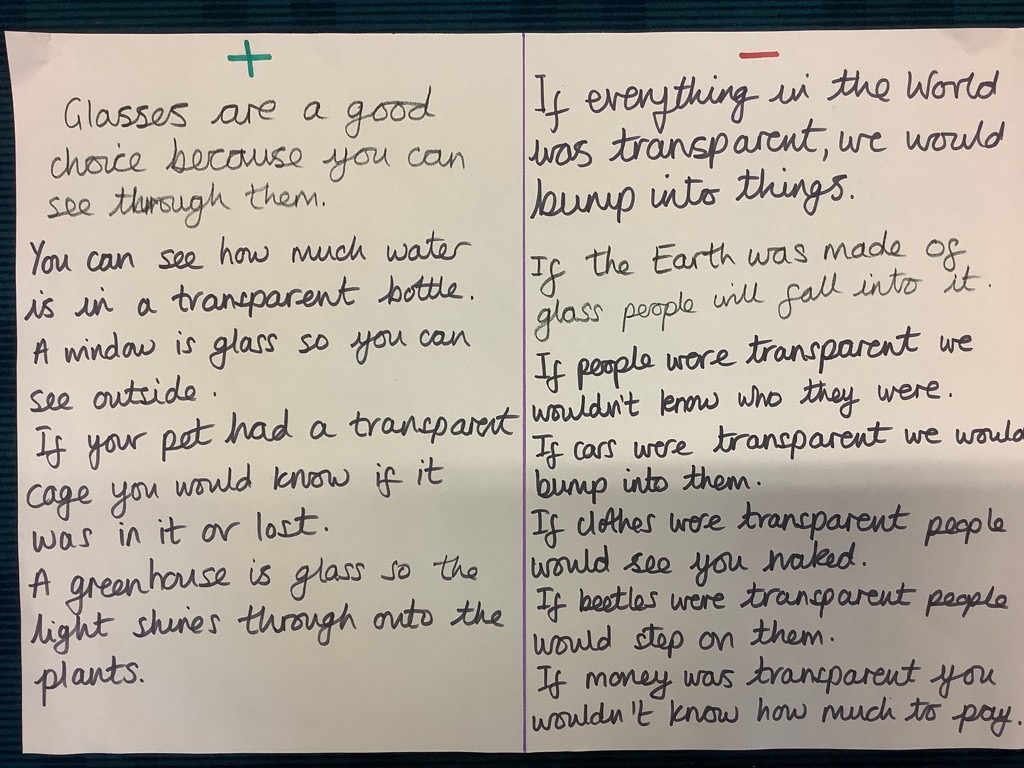 +
Glasses are a good
choice because you can
see through them.
You can see how much water
is in a transparent bottle.
A window is glass so you can
see outside.
If your pet had a transparent
cage you would know if it
was in it or lost.
A greenhouse is glass so the
light shines through onto the
plants.
—
If everything in the World
was transparent, we would
bump into things.
If the Earth was made of
glass people will fall into it.
If people were transparent we
wouldn't know who they were.
If cars were transparent we would
bump into them.
If clothes were transparent people
would see you naked.
If beetles were transparent people
would step on them.
If money was transparent you
wouldn't know how much to pay.